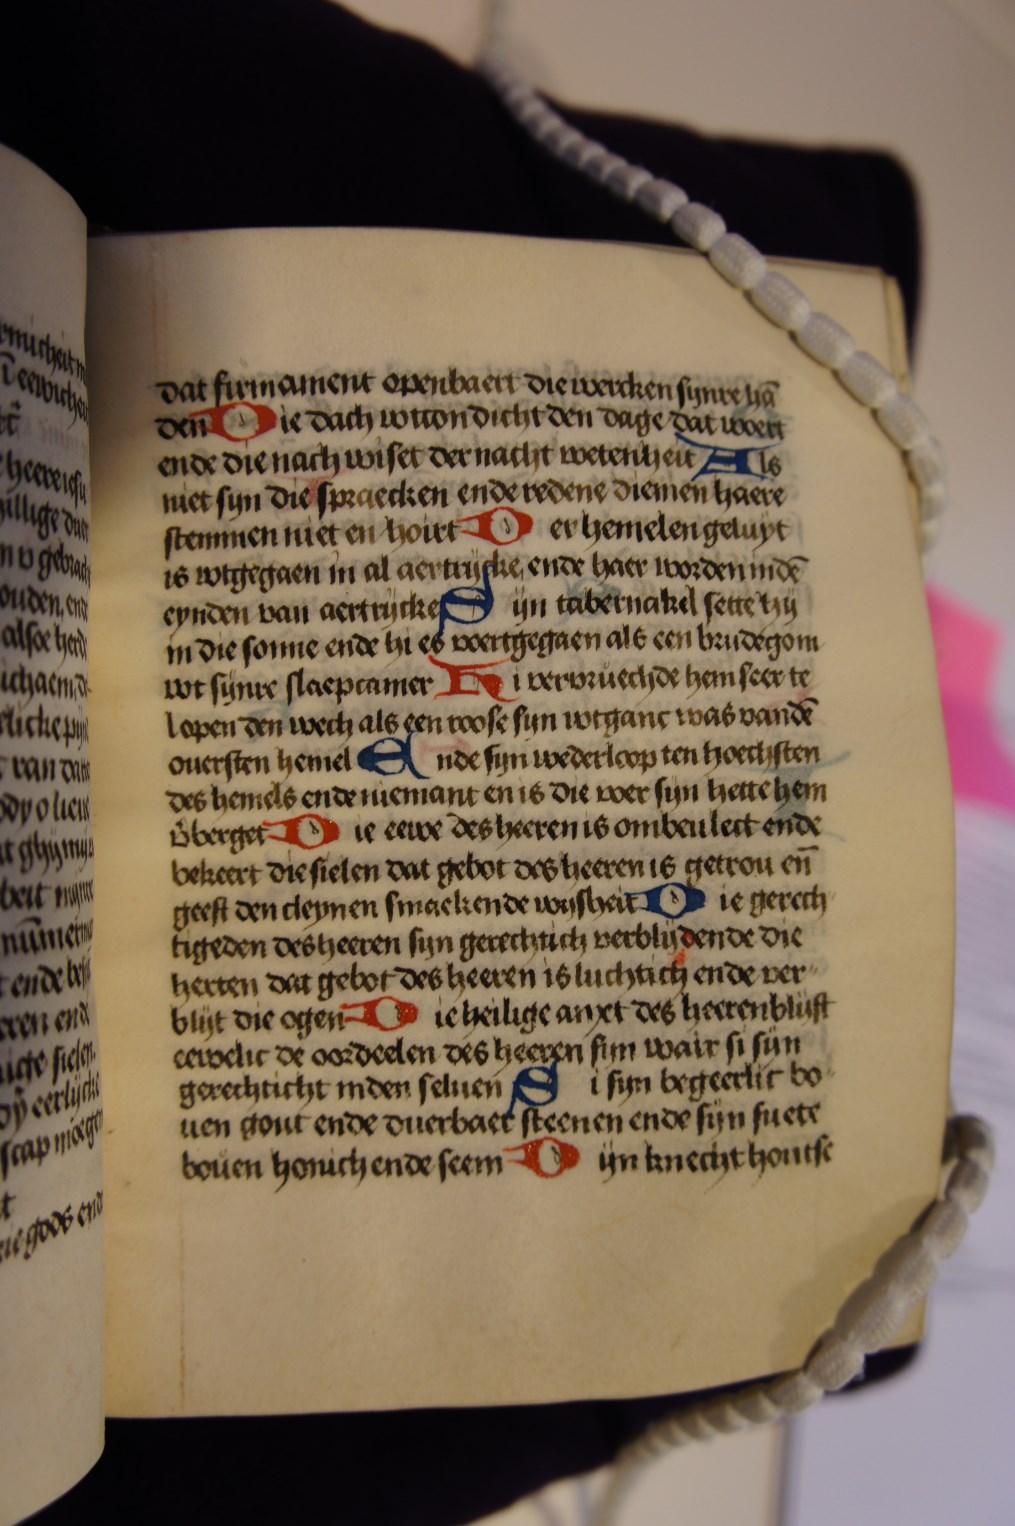 dat firmament openbaert die wercken synre hā
den Die dach wtton dicht den dage dat woert
ende die nach wiset der nacht wetenheit Als
niet syn die spraecken ende redene diemen haere
stemmen niet en hoirt Der hemelen geluyt
is wtgegaen in al aertrycke, ende haer worden indē
eynden van aertrycke Syn tabernakel sette hy
in die sonne ende hi es voertgegaen als een brudegom
wt synre slaepcamer Hi vervruechde hem seer te
lopen den wech als een roose syn wtganc was vandē
ouersten hemel Ende syn wederloop ten hoechsten
des hemels ende niemant en is die voer syn hette hem
v̄berget Die eewe des heeren is ombeulect ende
bekeert die sielen dat gebot des heeren is getrou en̄
geeft den cleynen smaekende wysheit Die gerech
tigeden des heeren syn gerechtich verblydende die
herten dat gebot des heeren is luchtich ende ver
blijt die ogen Die heilige anxt des heeren blijft
eewelic de oordeelen des heeren syn wair si syn
gerechticht inden seluen Si syn begeerlic bo
uen gout ende duerbaer steenen ende syn suete
bouen honich ende seem Dijn knecht houtse